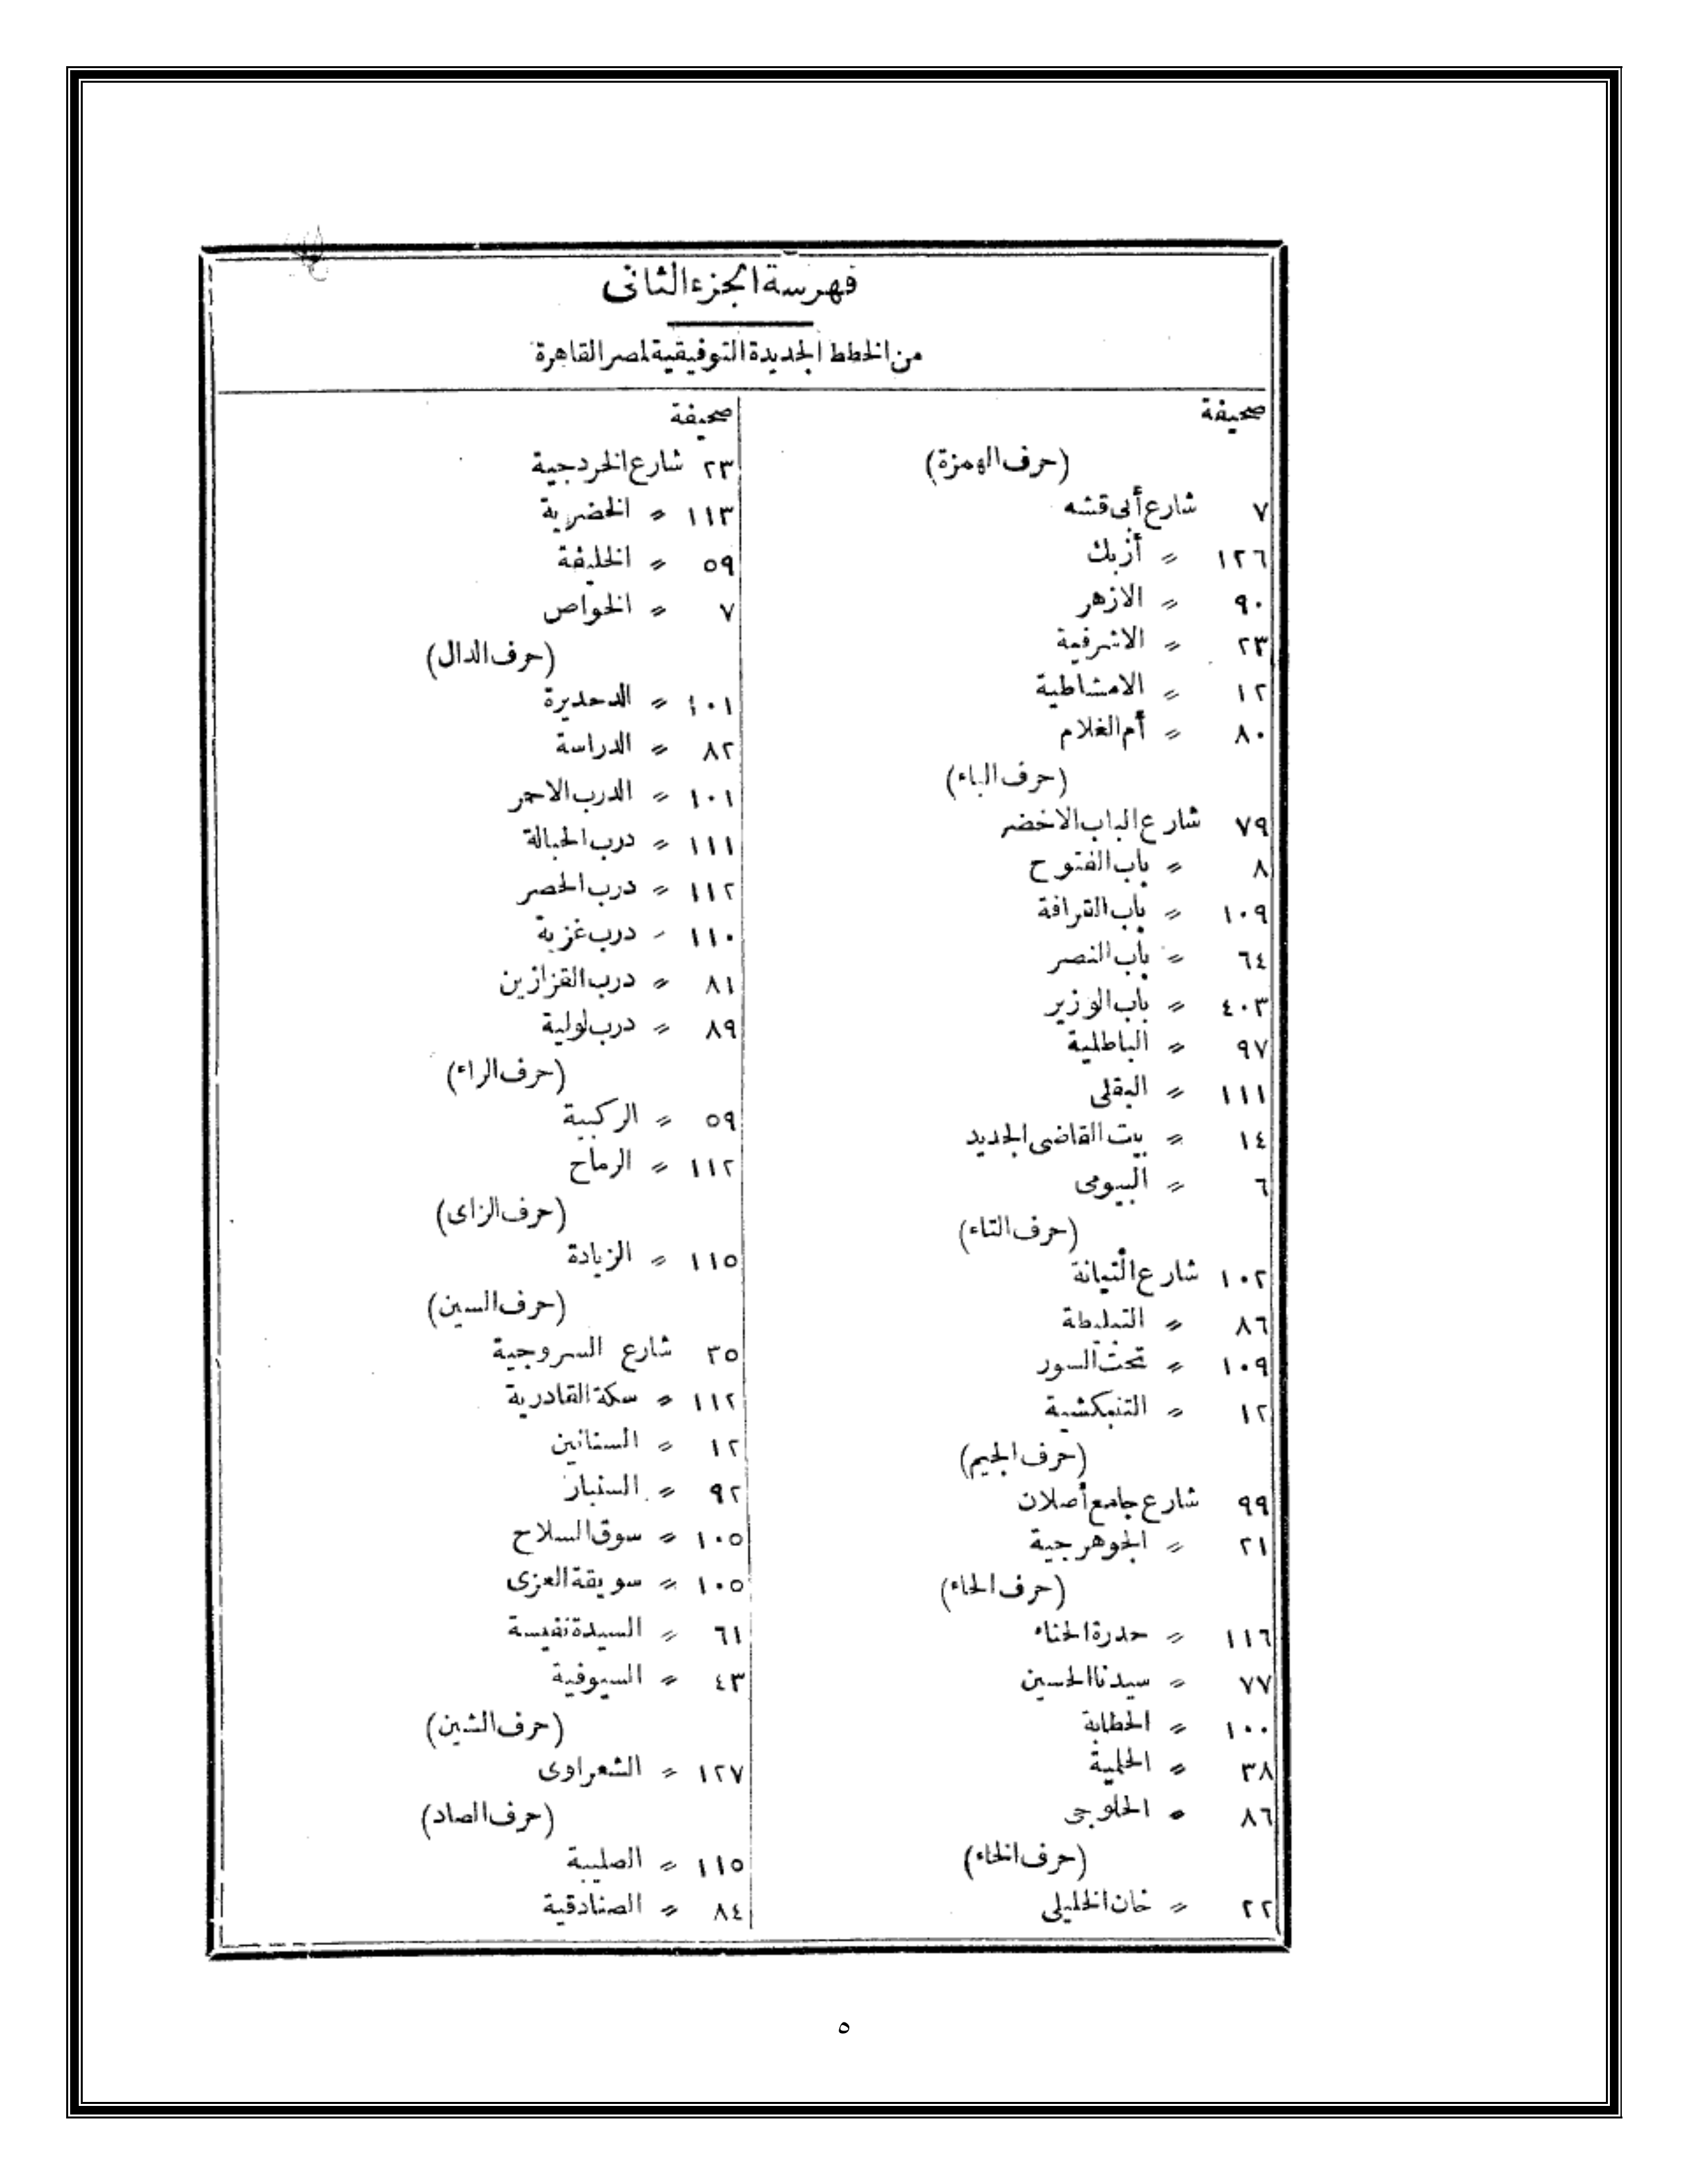 فهرسة الجزء الثانى
من الخطط الجديدة التوفيقية لمصر القاهرة
صحيفة
(حرف الهمزة)
٧ شارع أبى قشه
١٢٦ 〃 أزبك
٩٠ 〃 الازهر
٢٣ 〃 الاشرفية
١٢ 〃 الامشاطية
٨٠ 〃 أم الغلام
(حرف الباء)
٧٩ شارع الباب الاخضر
٨ 〃 باب الفتوح
١٠٩ 〃 باب القرافة
٦٤ 〃 باب النصر
٤٠٣ 〃 باب الوزير
٩٧ 〃 الباطلية
١١١ 〃 البقلى
١٤ 〃 بيت القاضى الجديد
٦ 〃 البيومى
(حرف التاء)
١٠٢ شارع التبانة
٨٦ 〃 التبليطة
١٠٩ 〃 تحت السور
١٢ 〃 التنبكشية
(حرف الجيم)
٩٩ شارع جامع أصلان
٢١ 〃 الجوهرجية
(حرف الحاء)
١١٦ 〃 حدرة الحناء
٧٧ 〃 سيدنا الحسين
١٠٠ 〃 الحطابة
٣٨ 〃 الحلمية
٨٦ 〃 الحلوجى
(حرف الخاء)
٢٢ 〃 خان الخليلى
صحيفة
٢٣ شارع الخردجية
١١٣ 〃 الخضرية
٥٩ 〃 الخليفة
٧ 〃 الخواص
(حرف الدال)
١٠١ 〃 الدحديرة
٨٢ 〃 الدراسة
١٠١ 〃 الدرب الاحمر
١١١ 〃 درب الحبالة
١١٢ 〃 درب الحصر
١١٠ 〃 درب غزية
٨١ 〃 درب القزازين
٨٩ 〃 درب لولية
(حرف الراء)
٥٩ 〃 الركبية
١١٢ 〃 الرماح
(حرف الزاى)
١١٥ 〃 الزيادة
(حرف السين)
٣٥ شارع السروجية
١١٢ 〃 سكة القادرية
١٢ 〃 السنانين
٩٢ 〃 السنبار
١٠٥ 〃 سوق السلاح
١٠٥ 〃 سويقة العزى
٦١ 〃 السيدة نفيسة
٤٣ 〃 السيوفية
(حرف الشين)
١٢٧ 〃 الشعراوى
(حرف الصاد)
١١٥ 〃 الصليبة
٨٤ 〃 الصنادقية
٥